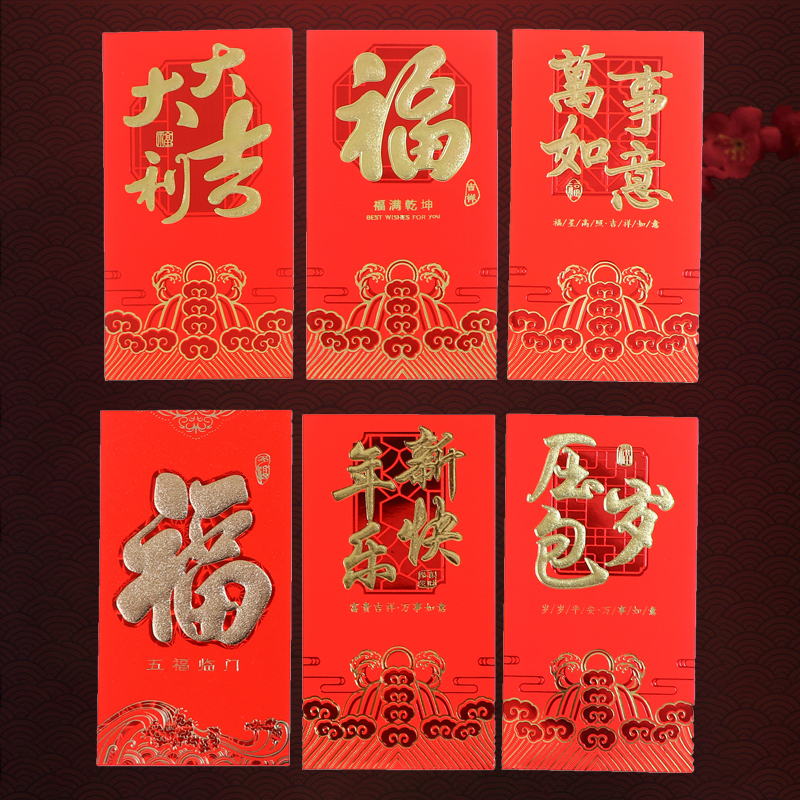 大吉
大利
福
吉祥
福满乾坤
BEST WISHES FOR YOU
萬事
如意
福/星/高/照·吉/祥/如/意
福
五福临门
新年
快乐
压岁
包
岁/岁/平/安·万/事/如/意